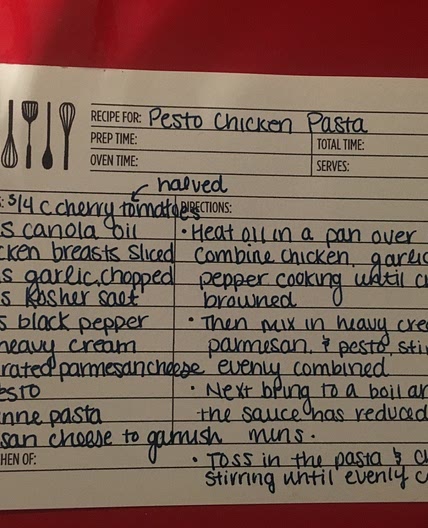 RECIPE FOR: Pesto Chicken Pasta
PREP TIME:
TOTAL TIME:
OVEN TIME:
SERVES:
halved
: 3/4 c.cherry tomatoes
s canola oil
cken breasts sliced
s garlic, chopped
s kosher salt
s black pepper
heavy cream
rated parmesan cheese
esto
nne pasta
san cheese to garnish
HEN OF:
DIRECTIONS:
• Heat oil in a pan over
combine chicken, garlic
pepper cooking until c
browned
• Then mix in heavy cre
parmesan, & pesto, stir
evenly combined
• Next bring to a boil an
the sauce has reduced
mins.
• Toss in the pasta & c
stirring until evenly c